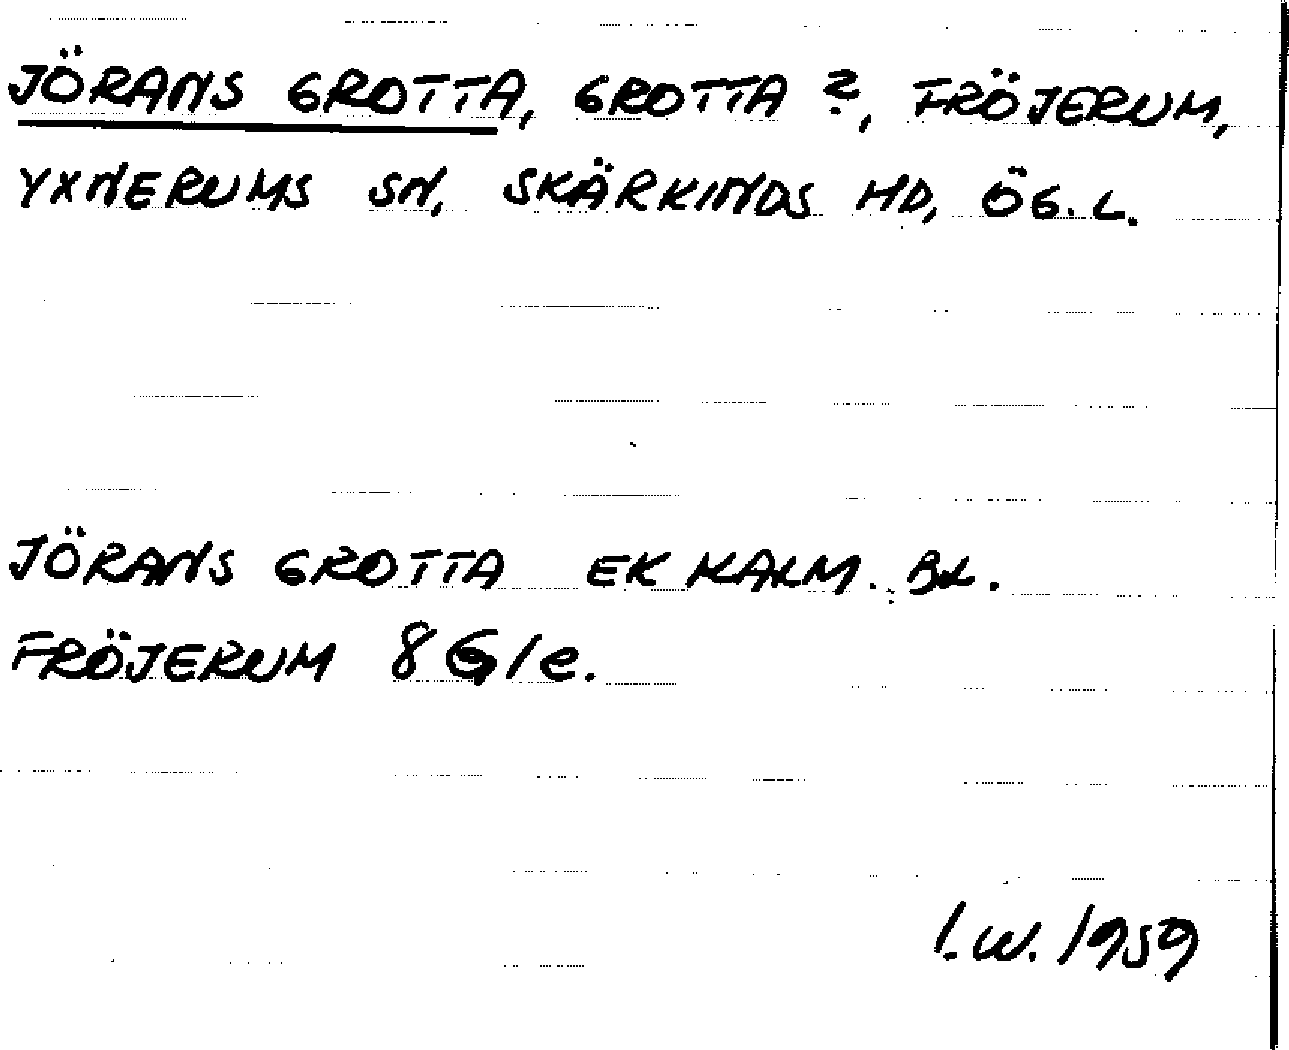 JÖRANS GROTTA, GROTTA ?, FRÖJERUM,
YXNERUMS SN, SKÄRKINDS HD, ÖG. L.
JÖRANS GROTTA EK KALM. BL.
FRÖJERUM 8 G/e.
I.W. 1959